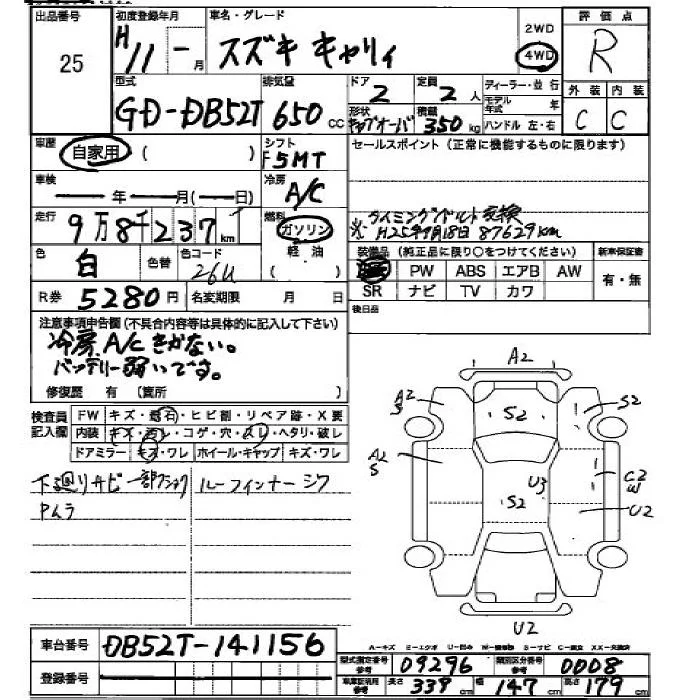 出品番号 25
初度登録年月 H11年 - 月
車名・グレード スズキ キャリィ
2WD
4WD
評価点 R
型式 GD-DB52T
排気量 650 cc
ドア 2
定員 2人
形状 キャブオーバ
積載 350 kg
ディーラー・並行
モデル年式 年
ハンドル 左・右
外装 内装
C C
車歴 自家用 ( )
シフト F5MT
セールスポイント (正常に機能するものに限ります)
車検 年 月( 日)
冷房 A/C
タイミングベルト交換
※ H25年9月18日 87629km
走行 9万8千237km
燃料 ガソリン
軽油
色 白 色替 色コード 26U
装備品 (純正品に限り○をつけてください)
PW ABS エアB AW
SR ナビ TV カワ
新車保証書
有・無
R券 5280円 名変期限 月 日
後日品
注意事項申告欄(不具合内容等は具体的に記入して下さい)
冷房A/Cきかない。
バッテリー弱いです。
修復歴 有 (箇所 )
検査員記入欄
FW キズ・飛石・ヒビ割・リペア跡・X要
内装 キズ・ヨゴレ・コゲ・穴・スレ・ヘタリ・破レ
ドアミラー キズ・ワレ ホイール・キャップ キズ・ワレ
下廻りサビ一部クラック
ルーフインナーシワ
PAラ
A2
A2
S
S2
S2
A2
S
U3
C2
W
S2
U2
U2
A-キズ E-エクボ U-凹み W-補修跡 S-サビ C-腐食 XX-交換済
車台番号 DB52T-141156
登録番号
型式指定番号 参考 09296
類別区分番号 参考 0008
車庫証明用 参考 長さ 339 cm 幅 147 cm 高さ 179 cm